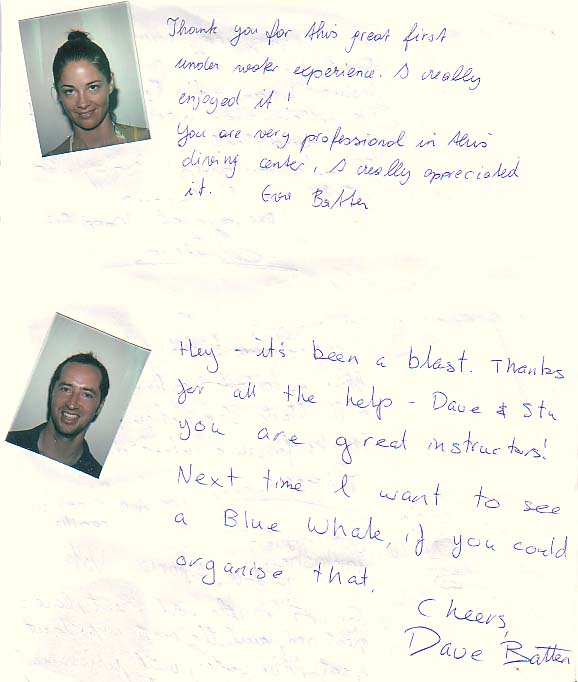 Thank you for this great first
under water experience. I really
enjoyed it!
You are very professional in this
diving center, I really appreciated
it. Eva Batten
Hey - it's been a blast. Thanks
for all the help - Dave & Stu
you are great instructors!
Next time I want to see
a Blue Whale, if you could
organise that.
Cheers,
Dave Batten